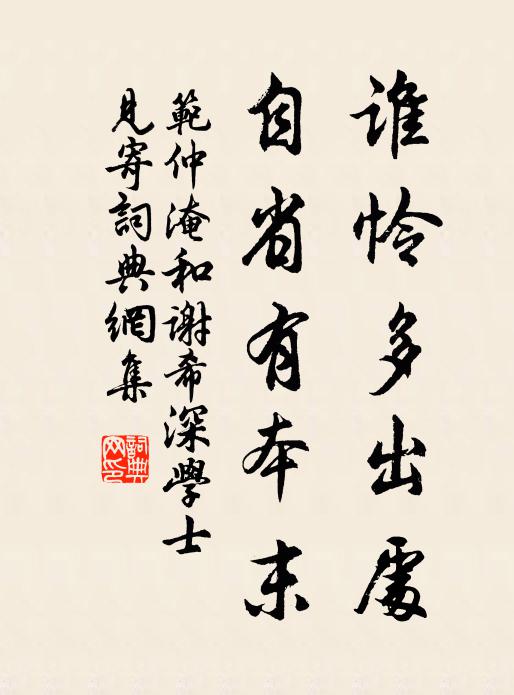 誰怜多出處
自省有本末
範仲淹和谢希深學士
見寄詞典網集
詞典
网印